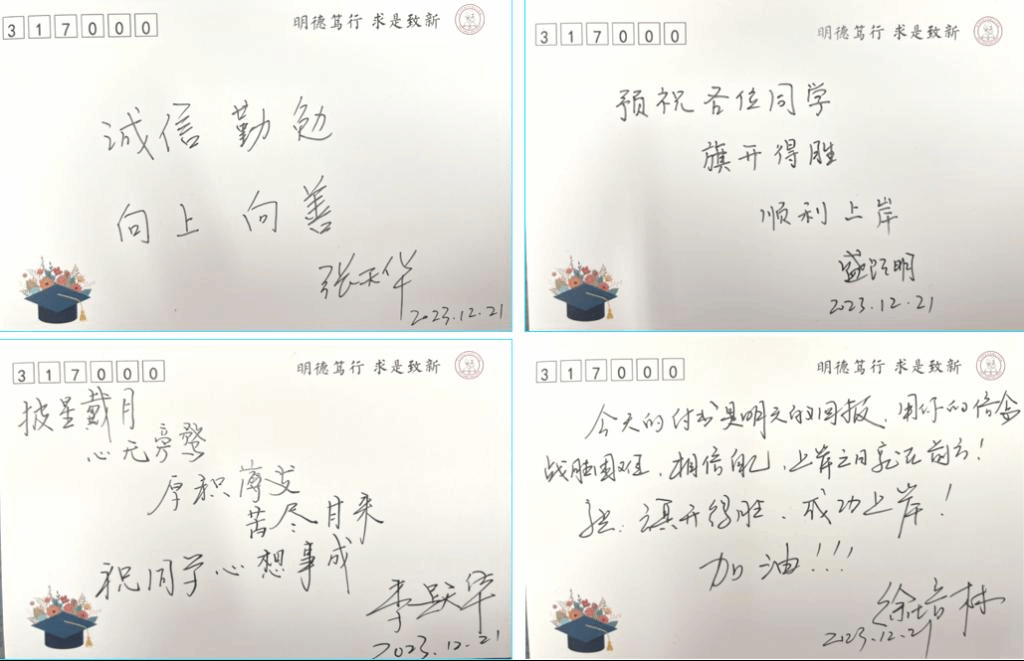 317000
明德笃行 求是致新
诚信 勤勉
向上 向善
张天华
2023.12.21
317000
明德笃行 求是致新
预祝各位同学
旗开得胜
顺利上岸
盛 明
2023.12.21
317000
明德笃行 求是致新
披星戴月
心无旁骛
厚积薄发
苦尽甘来
祝同学心想事成
李跃华
2023.12.21
317000
明德笃行 求是致新
今天的付出是明天的回报，用你的信念
战胜困难，相信自己，上岸之日就在前方！
祝：旗开得胜，成功上岸！
加油!!!
徐培林
2023.12.21